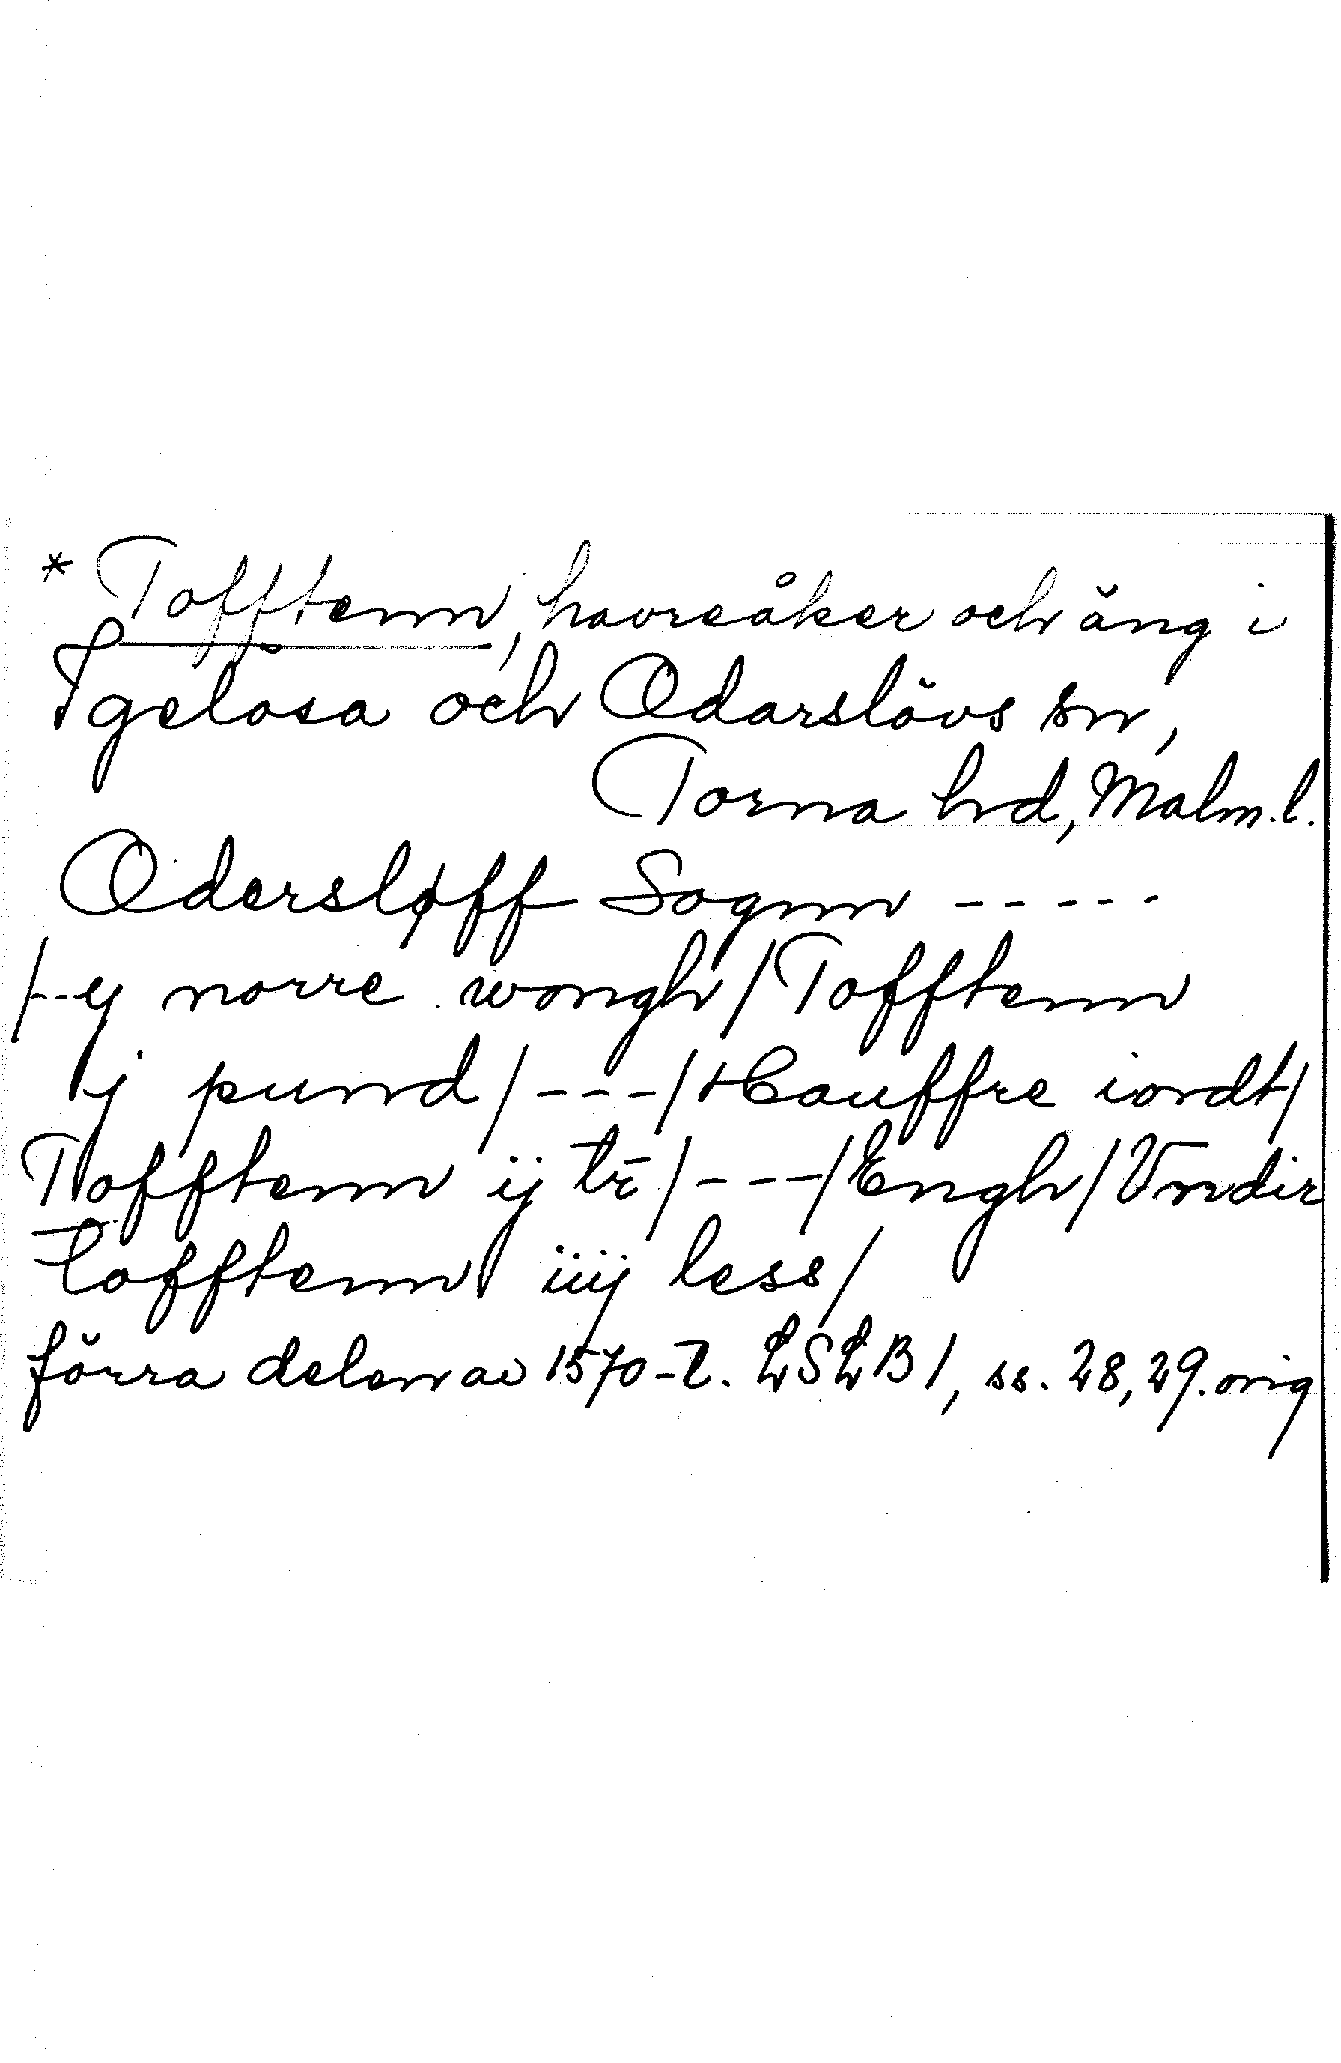 * Tofftenn, havreåker och äng i
Igelösa och Odarslövs sn,
Torna hd, Malm.l.
Odersløff Sognn -----
/--y norre wongh/Tofftenn
j pund/---/Hauffre iordt/
Tofftenn ij tr̄/---/Engh/Vndir
tofftenn iiij less/
förra delen av 1570-t. LSLB 1, ss. 28, 29. orig